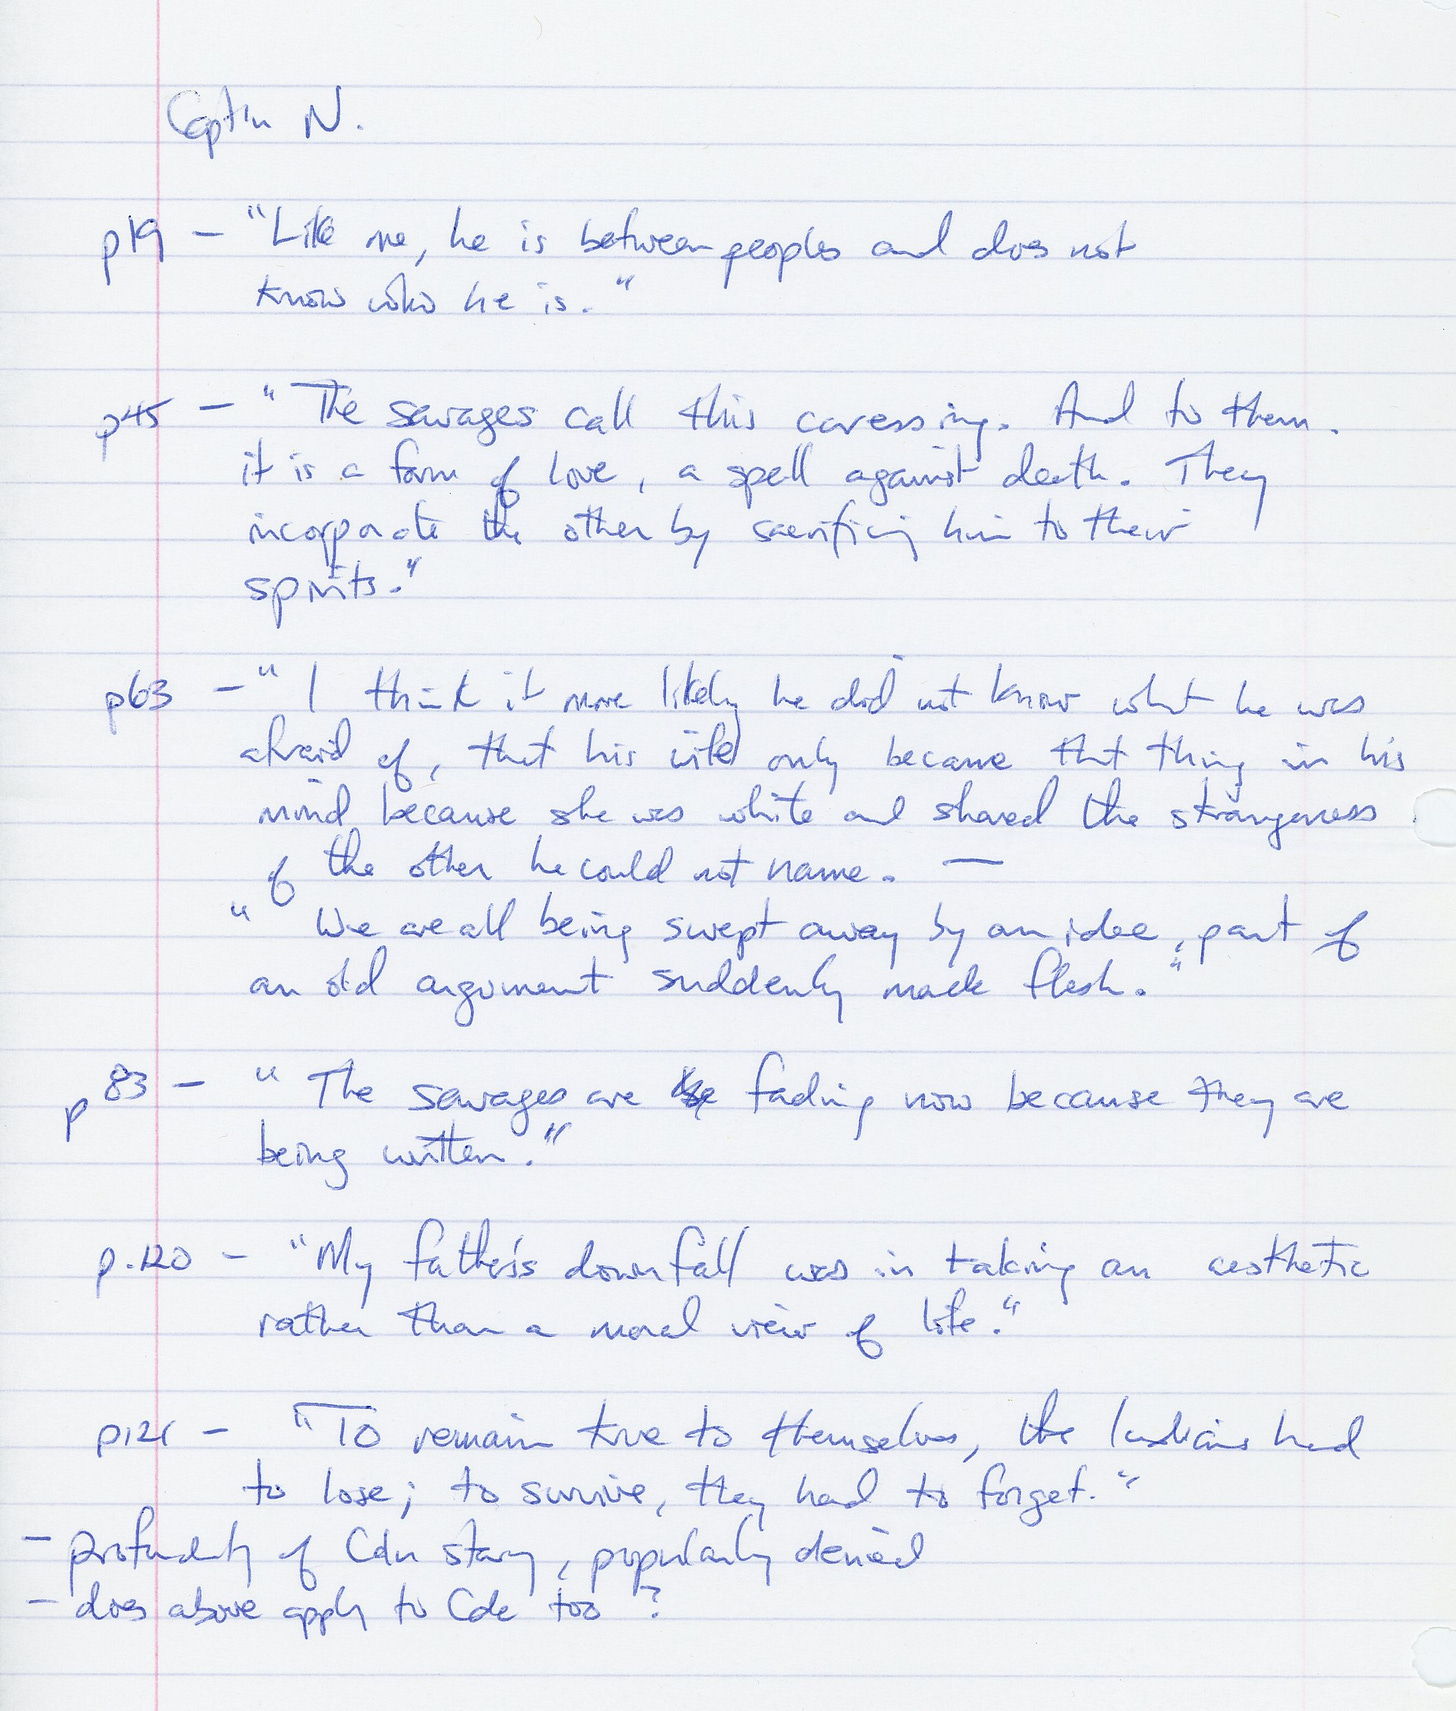 Captin N.
p19 — "Like me, he is between peoples and does not
know who he is."
p45 — "The savages call this caressing. And to them.
it is a form of love, a spell against death. They
incorporate the other by sacrificing him to their
spirits."
p63 — "I think it more likely he did not know what he was
afraid of, that his wife only became that thing in his
mind because she was white and shared the strangeness
of the other he could not name. —
" We are all being swept away by an idea, part of
an old argument suddenly made flesh."
p83 — "The savages are fading now because they are
being written."
p.120 — "My father's downfall was in taking an aesthetic
rather than a moral view of life."
p121 — "To remain true to themselves, the Indians had
to lose; to survive, they had to forget."
— profundity of Cdn story, popularly denied
— does above apply to Cda too?